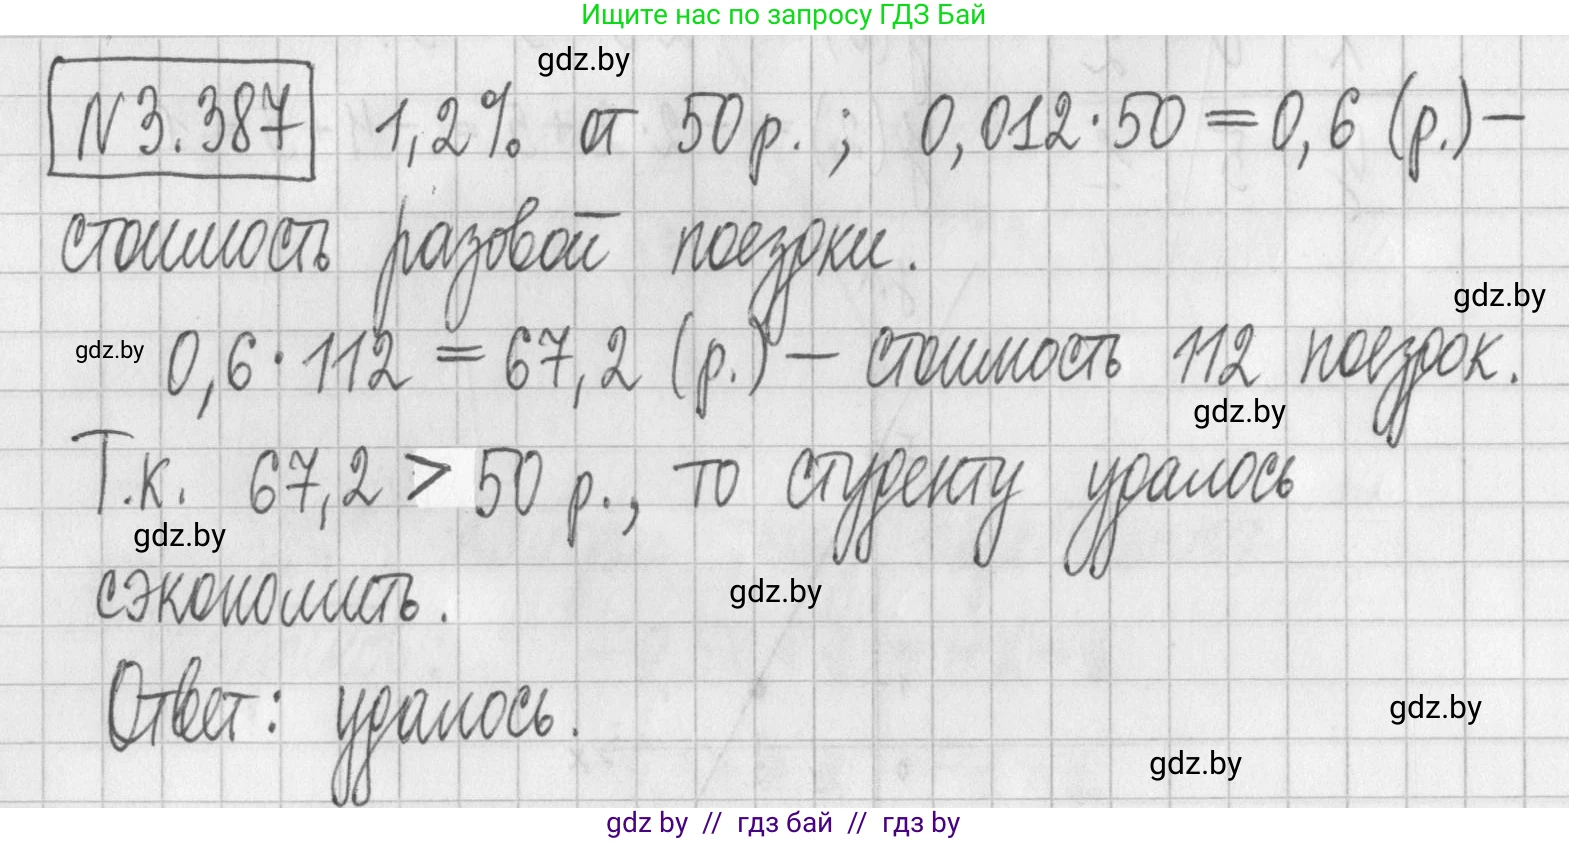 Ищите нас по запросу ГДЗ Бай
gdz.by
N3.387 1,2% от 50 р. ; 0,012·50 = 0,6 (р.) –
стоимость разовой поездки.
gdz.by
gdz.by 0,6·112 = 67,2 (р.) – стоимость 112 поездок.
gdz.by
Т.к. 67,2 > 50 р., то студенту удалось
gdz.by
сэкономить.
gdz.by
Ответ: удалось.
gdz.by
gdz.by
gdz by // гдз бай // гдз by